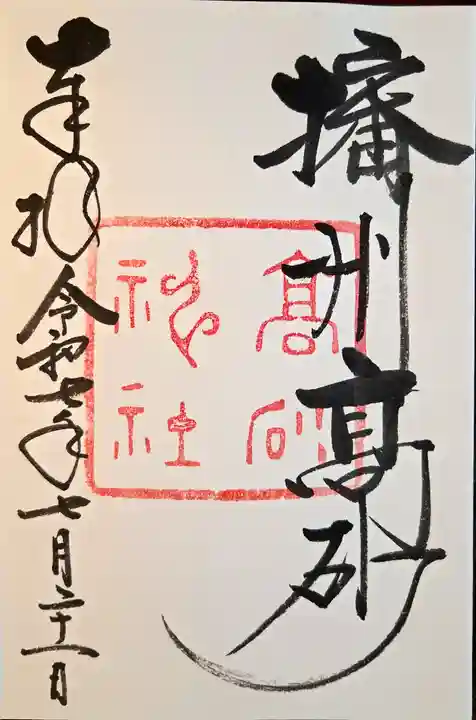 播州高砂
高砂
神社
奉拝 令和七年七月二十一日